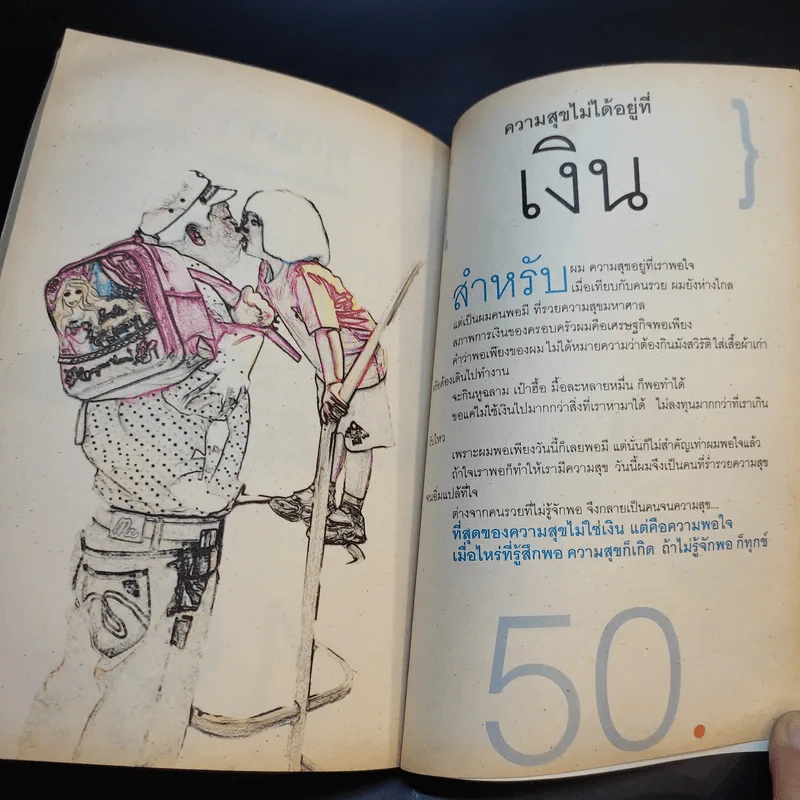 ความสุขไม่ได้อยู่ที่
เงิน
สำหรับผม ความสุขอยู่ที่เราพอใจ
เมื่อเทียบกับคนรวย ผมยังห่างไกล
แต่เป็นผมคนพอมี ที่รวยความสุขมหาศาล
สภาพการเงินของครอบครัวผมคือเศรษฐกิจพอเพียง
คำว่าพอเพียงของผม ไม่ได้หมายความว่าต้องกินมังสวิรัติ ใส่เสื้อผ้าเก่า
ต้องเดินไปทำงาน
จะกินหูฉลาม เป๋าฮื้อ มื้อละหลายหมื่น ก็พอทำได้
ขอแค่ไม่ใช้เงินไปมากกว่าสิ่งที่เราหามาได้ ไม่ลงทุนมากกว่าที่เราเกิน
ไหว
เพราะผมพอเพียงวันนี้ก็เลยพอมี แต่นั่นก็ไม่สำคัญเท่าผมพอใจแล้ว
ถ้าใจเราพอก็ทำให้เรามีความสุข วันนี้ผมจึงเป็นคนที่ร่ำรวยความสุข
จนยิ้มแปล้ที่ใจ
ต่างจากคนรวยที่ไม่รู้จักพอ จึงกลายเป็นคนจนความสุข...
ที่สุดของความสุขไม่ใช่เงิน แต่คือความพอใจ
เมื่อไหร่ที่รู้สึกพอ ความสุขก็เกิด ถ้าไม่รู้จักพอ ก็ทุกข์
50.